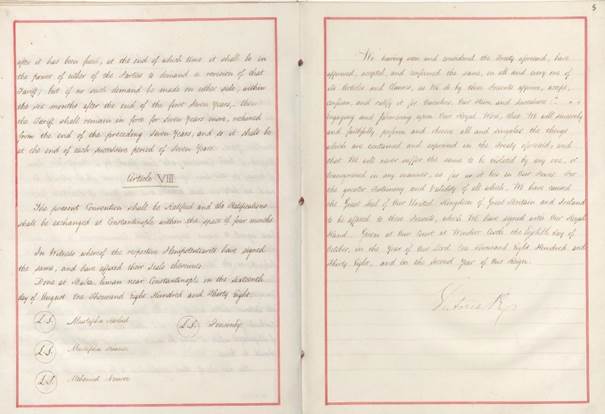 after it has been fixed, at the end of which time it shall be in
the power of either of the Parties to demand a revision of that
Tariff; but if no such demand be made on either side, within
the six months after the end of the first Seven Years, then
the Tariff shall remain in force for Seven Years more, reckoned
from the end of the preceding Seven Years, and so it shall be
at the end of each successive period of Seven Years.
Article VIII.
The present Convention shall be Ratified and the Ratifications
shall be exchanged at Constantinople within the space of four months
In Witness whereof the respective Plenipotentiaries have signed
the same, and have affixed their Seals thereunto.
Done at Balta Liman near Constantinople on the sixteenth
day of August One Thousand Eight Hundred and Thirty Eight.
(L.S.) Mustapha (L.S.) Ponsonby
(L.S.) Mustapha
(L.S.) Mehemed
5
We having seen and considered the Treaty aforesaid, have
approved, accepted, and confirmed the same, in all and every one of
its Articles and Clauses, as We do by these Presents approve, accept,
confirm, and ratify it for Ourselves, Our Heirs and Successors:
Engaging and promising upon Our Royal Word, that We will sincerely
and faithfully perform and observe all and singular the things
which are contained and expressed in the Treaty aforesaid, and
that We will never suffer the same to be violated by any one, or
transgressed in any manner, as far as it lies in Our Power. For
the greater Testimony and Validity of all which, We have caused
the Great Seal of Our United Kingdom of Great Britain and Ireland
to be affixed to these Presents, which We have signed with Our Royal
Hand. Given at Our Court at Windsor Castle, the eighth day of
October, in the Year of Our Lord One Thousand Eight Hundred and
Thirty Eight, and in the Second Year of Our Reign.
Victoria R